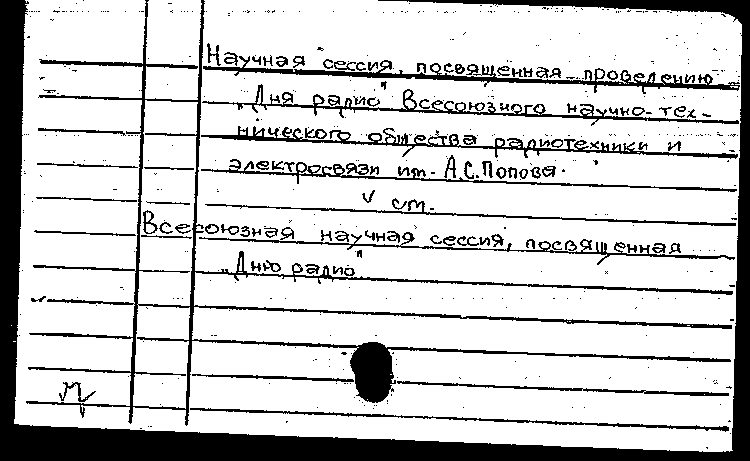 Научная сессия, посвященная проведению
„Дня радио" Всесоюзного научно-тех-
нического общества радиотехники и
электросвязи им. А.С.Попова.
см.
Всесоюзная научная сессия, посвященная
„Дню радио"